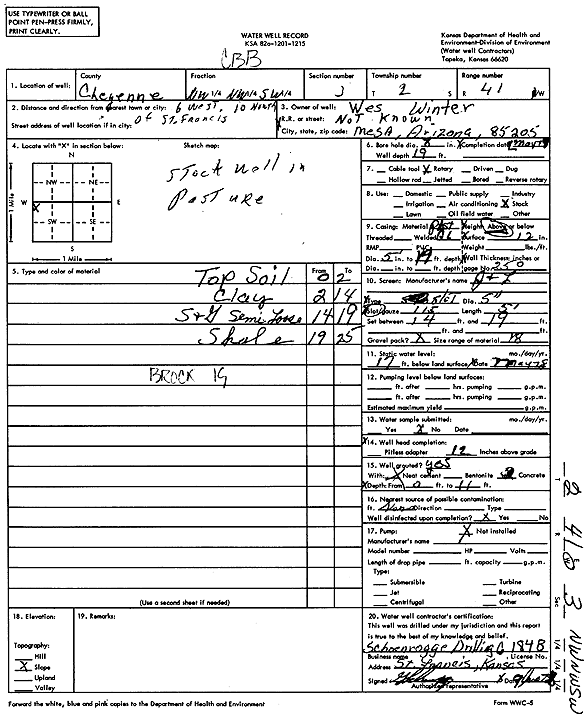 USE TYPEWRITER OR BALL
POINT PEN-PRESS FIRMLY,
PRINT CLEARLY.
WATER WELL RECORD
KSA 82a-1201-1215
Kansas Department of Health and
Environment-Division of Environment
(Water well Contractors)
Topeka, Kansas 66620
CBB
1. Location of well:
County
Cheyenne
Fraction
NW 1/4 NW 1/4 SW 1/4
Section number
3
Township number
T 2 S
Range number
R 41 E/W
2. Distance and direction from nearest town or city: 6 West, 10 North
Of St. Francis
Street address of well location if in city:
3. Owner of well: Wes Winter
R.R. or street: Not Known
City, state, zip code: Mesa, Arizona, 85205
4. Locate with "X" in section below:
N
NW NE
W E
X
SW SE
S
1 Mile
1 Mile
Sketch map:
Stock well in
Pasture
6. Bore hole dia. 8 in. X Completion date May 78
Well depth 19 ft.
7. Cable tool X Rotary Driven Dug
Hollow rod Jetted Bored Reverse rotary
8. Use: Domestic Public supply Industry
Irrigation Air conditioning X Stock
Lawn Oil field water Other
9. Casing: Material Height: Above or below
Threaded Welded Surface 12 in.
RMP PVC Weight lbs./ft.
Dia. 5 in. to 19 ft. depth Wall Thickness: inches or
Dia. in. to ft. depth gage No. 250
5. Type and color of material From To
Top Soil 0 2
Clay 2 14
S+G Semi Loose 14 19
Shale 19 25
BROCK IG
10. Screen: Manufacturer's name
Type Slot Dia. 5"
Slot/gauze Length 5'
Set between 14 ft. and 19 ft.
ft. and ft.
Gravel pack? X Size range of material
11. Static water level: mo./day/yr.
17 ft. below land surface Date May 78
12. Pumping level below land surfaces:
ft. after hrs. pumping g.p.m.
ft. after hrs. pumping g.p.m.
Estimated maximum yield g.p.m.
13. Water sample submitted: mo./day/yr.
Yes X No Date
14. Well head completion:
Pitless adapter 12 Inches above grade
15. Well grouted? yes
With: X Neat cement Bentonite Concrete
Depth: From 0 ft. to 11 ft.
16. Nearest source of possible contamination:
ft. None Direction Type
Well disinfected upon completion? X Yes No
17. Pump: X Not installed
Manufacturer's name
Model number HP Volts
Length of drop pipe ft. capacity g.p.m.
Type:
Submersible Turbine
Jet Reciprocating
Centrifugal Other
(Use a second sheet if needed)
18. Elevation:
Topography:
Hill
X Slope
Upland
Valley
19. Remarks:
20. Water well contractor's certification:
This well was drilled under my jurisdiction and this report
is true to the best of my knowledge and belief.
Schoenrogge Drilling 184B
Business name License No.
Address St. Francis, Kansas
Signed Date
Authorized representative
Forward the white, blue and pink copies to the Department of Health and Environment
Form WWC-5
T 2
R 41 W
Sec 3
1/4 1/4 1/4 NWNWSW